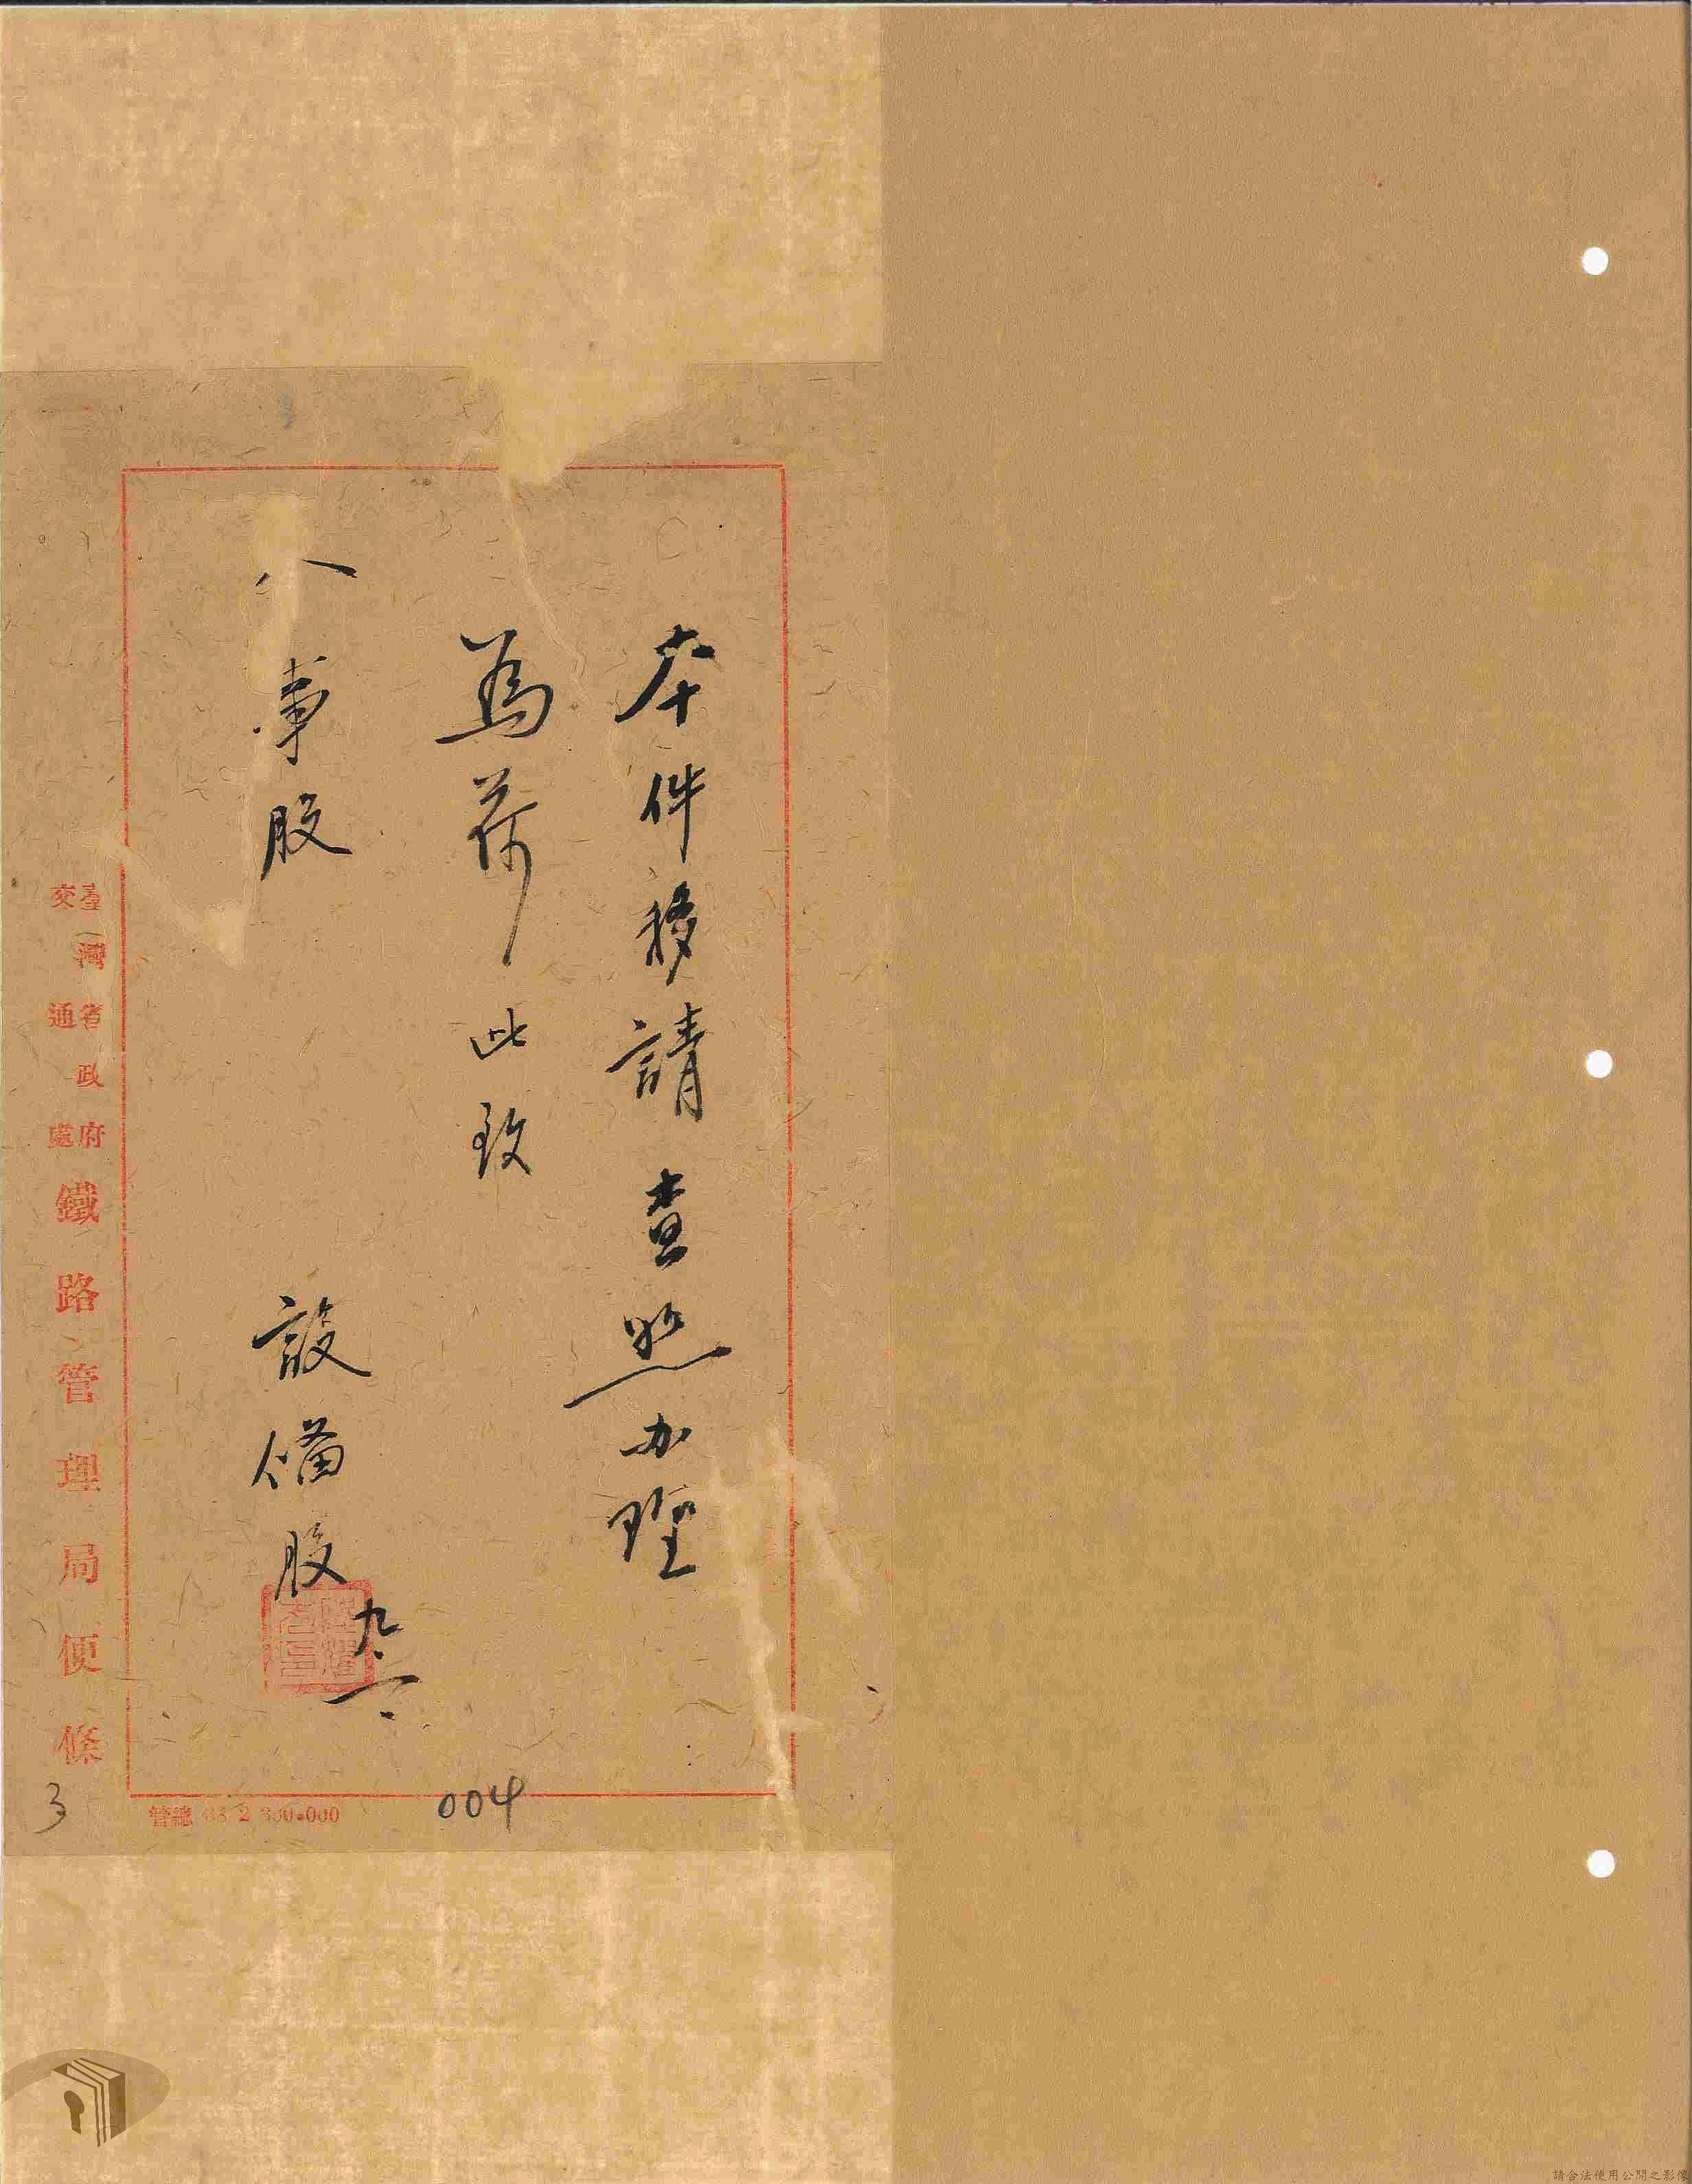 本件移請查照办理
為荷此致
人事股
設備股
九
臺灣省政府
交通處
鐵路管理局便條
管總 2 300.000
004
3
請合法使用公開之影像